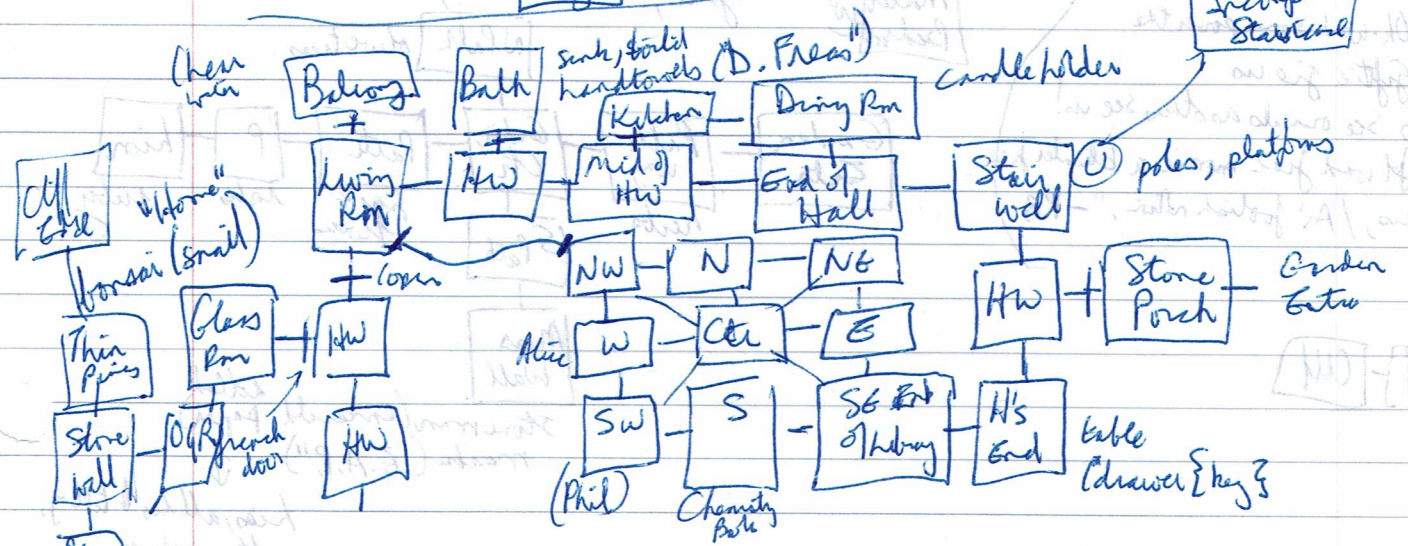 Staircase
Balcony
Bath
sink, toilet
handtowels
Kitchen
Dining Rm
candleholder
Cliff
End
"Home"
bonsai (small)
Living
Rm
HW
Mid of
HW
End of
Hall
Stair
well
U
poles, platforms
open
NW
N
NE
HW
Stone
Porch
Garden
Thin
Glass
Rm
HW
Alice
W
Ctr
E
Stone
Wall
door
HW
SW
S
SE
of Library
H's
End
table
(drawer {key}
(Phil)
Chemistry